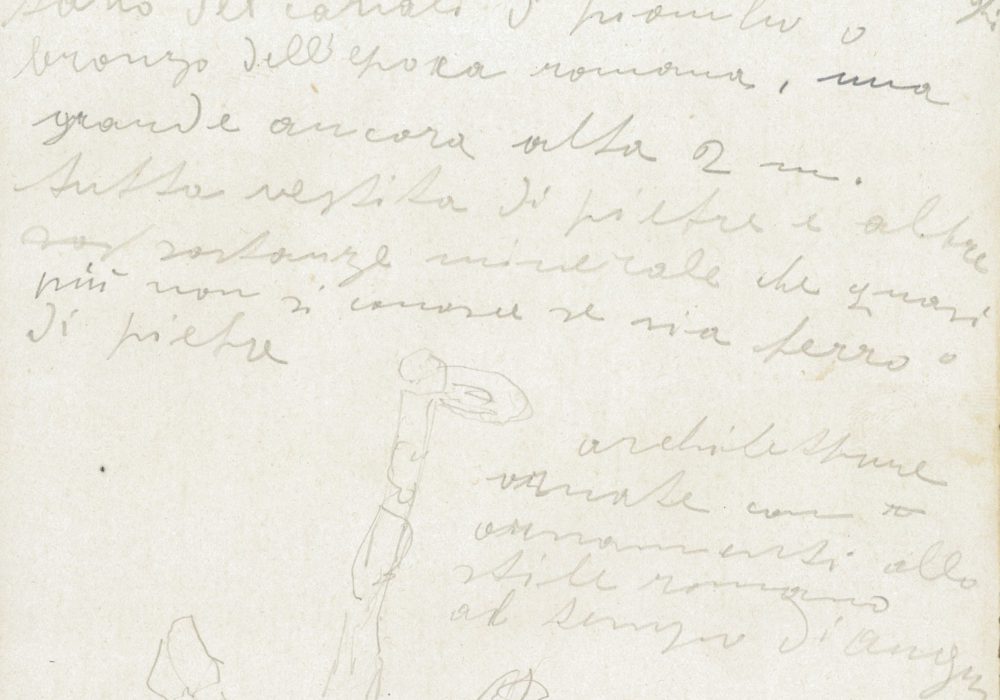 dei canali di piombo o
bronzo dell'epoca romana, una
grande ancora alta 2 m.
tutta vestita di pietre e altre
sostanze minerale che quasi
più non si conosce se sia ferro o
di pietre
architetture
ornate con
ornamenti allo
stile romano
al tempo di